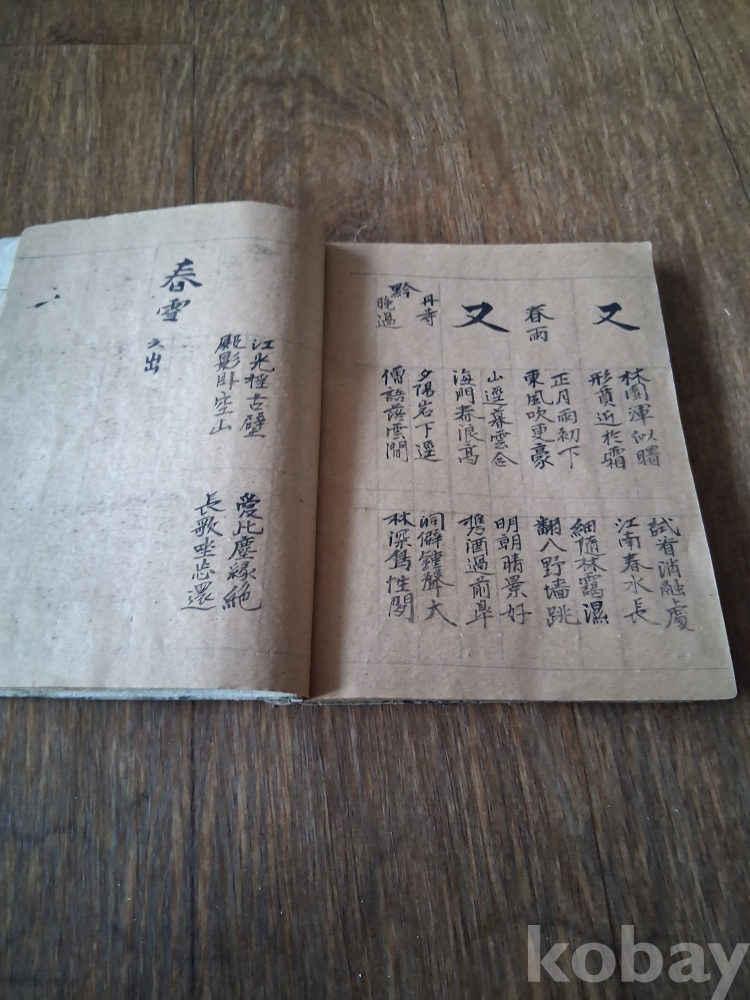 又
林園渾似曙
形質近於霜
試看消融處
江南春水長
春雨
正月雨初下
東風吹更豪
細隨林靄濕
翻入野墻跳
又
山逕暮雲合
海門春浪高
明朝晴景好
携酒過前皐
黔丹寺
晚過
夕陽岩下逕
僧語落雲間
洞僻鍾聲大
林深鳥性閒
江光楻古壁
殿影卧空山
愛此塵緣絶
長歌坐忘還
春雪
kobay